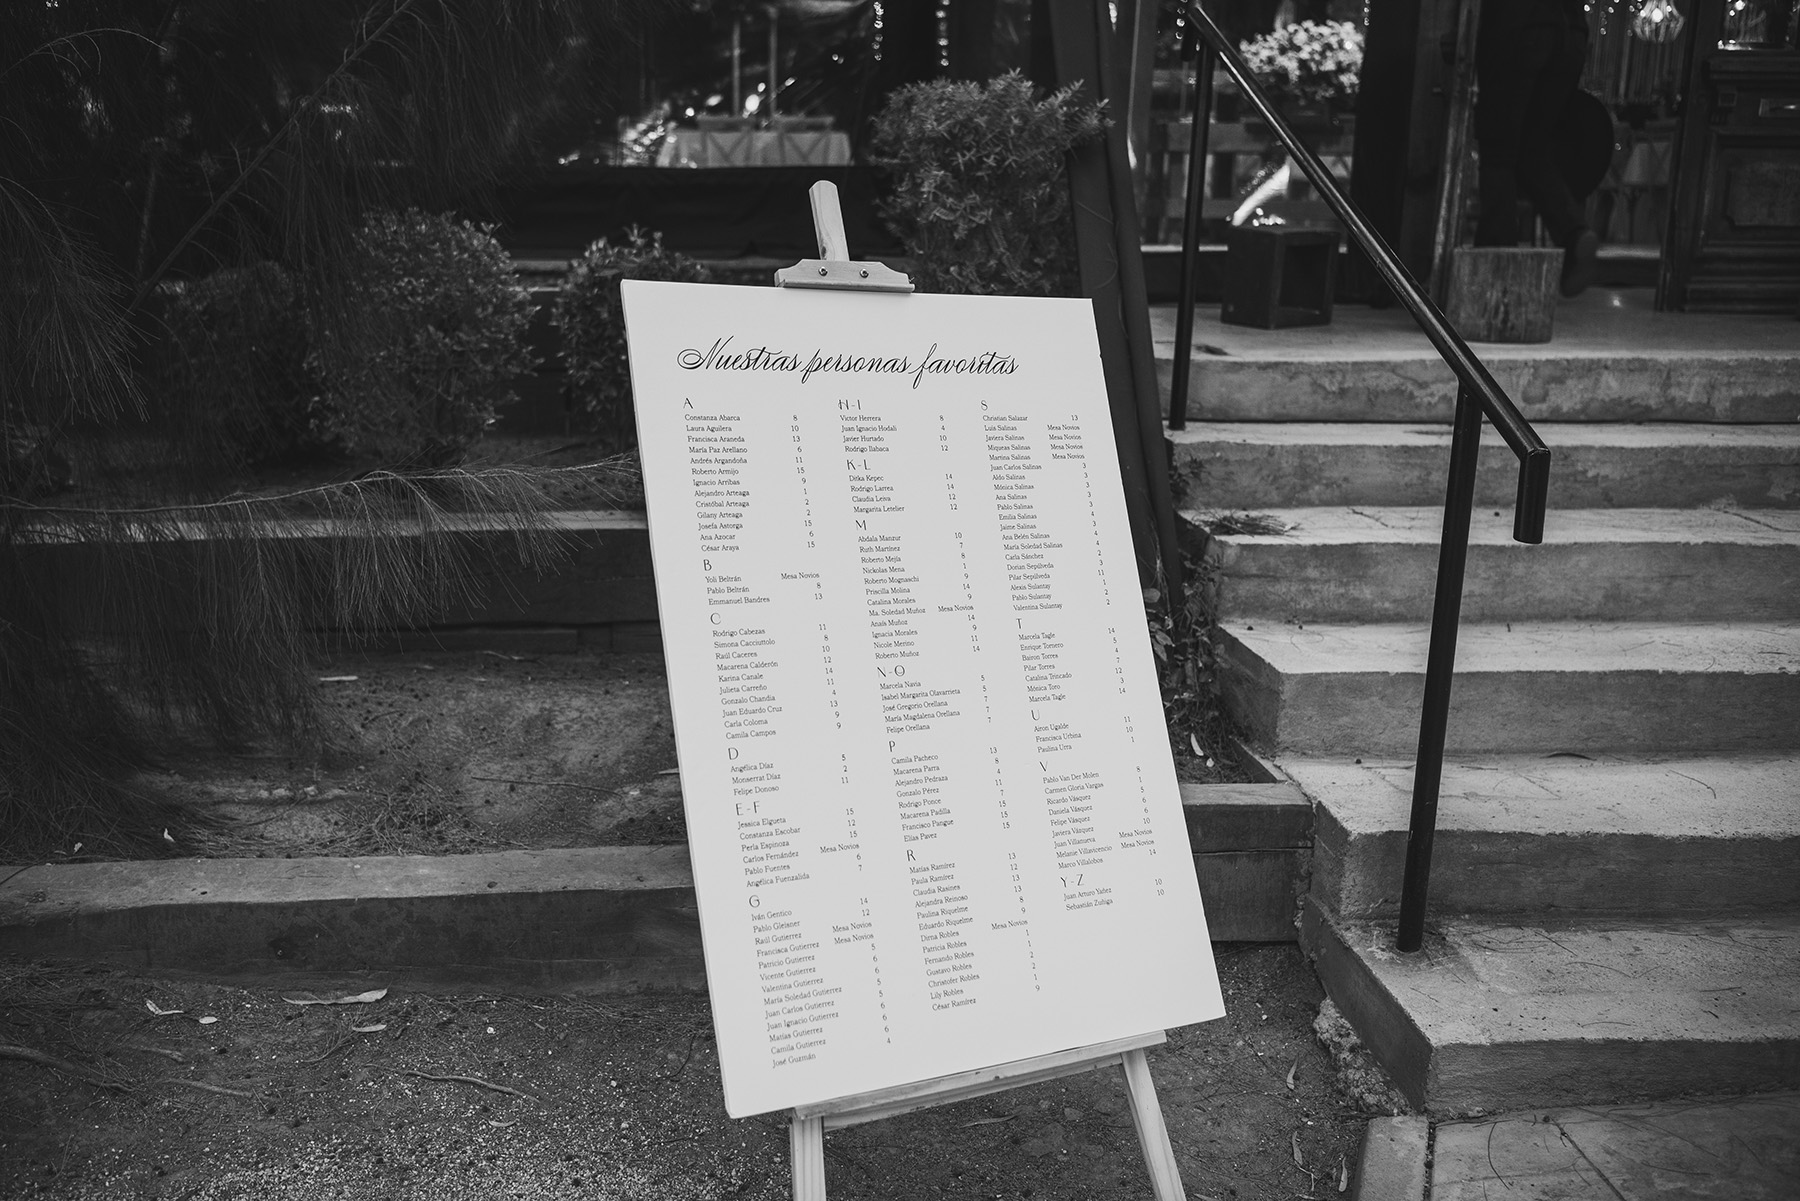 Nuestras personas favoritas
A
Constanza Abarca 8
Laura Aguilera 10
Francisca Araneda 13
María Paz Arellano 6
Andrés Argandoña 11
Roberto Armijo 15
Ignacio Arribas 9
Alejandro Arteaga 1
Cristóbal Arteaga 2
Gilany Arteaga 2
Josefa Astorga 15
Ana Azocar 6
César Araya 15
B
Yoli Beltrán Mesa Novios
Pablo Beltrán 8
Emmanuel Bandres 13
C
Rodrigo Cabezas 11
Simona Cacciuttolo 8
Raúl Caceres 10
Macarena Calderón 12
Karina Canale 14
Julieta Carreño 11
Gonzalo Chandia 4
Juan Eduardo Cruz 13
Carla Coloma 9
Camila Campos 9
D
Angélica Díaz 5
Monserrat Díaz 2
Felipe Donoso 11
E-F
Jessica Elgueta 15
Constanza Escobar 12
Perla Espinoza 15
Carlos Fernández Mesa Novios
Pablo Fuentes 6
Angélica Fuenzalida 7
G
Iván Gentico 14
Pablo Gleisner 12
Raúl Gutierrez Mesa Novios
Francisca Gutierrez Mesa Novios
Patricio Gutierrez 5
Vicente Gutierrez 6
Valentina Gutierrez 6
María Soledad Gutierrez 5
Juan Carlos Gutierrez 5
Juan Ignacio Gutierrez 6
Matías Gutierrez 6
Camila Gutierrez 6
José Guzmán 4
H-I
Victor Herrera 8
Juan Ignacio Hodali 4
Javier Hurtado 10
Rodrigo Ilabaca 12
K-L
Ditka Kepec 14
Rodrigo Larrea 14
Claudia Leiva 12
Margarita Letelier 12
M
Abdala Manzur 10
Ruth Martínez 7
Roberto Mejía 8
Nickolas Mena 1
Roberto Mognaschi 9
Priscilla Molina 14
Catalina Morales 9
Ma. Soledad Muñoz Mesa Novios
Anaís Muñoz 14
Ignacia Morales 9
Nicole Merino 11
Roberto Muñoz 14
N-O
Marcela Navia 5
Isabel Margarita Olavarrieta 5
José Gregorio Orellana 7
María Magdalena Orellana 7
Felipe Orellana 7
P
Camila Pacheco 13
Macarena Parra 8
Alejandro Pedraza 4
Gonzalo Pérez 11
Rodrigo Ponce 7
Macarena Padilla 15
Francisco Pangue 15
Elías Pavez 15
R
Matías Ramírez 13
Paula Ramírez 12
Claudia Rasines 13
Alejandra Reinoso 13
Paulina Riquelme 8
Eduardo Riquelme 9
Dirna Robles Mesa Novios
Patricia Robles 1
Fernando Robles 1
Gustavo Robles 2
Christofer Robles 2
Lily Robles 1
César Ramírez 9
S
Christian Salazar 13
Luis Salinas Mesa Novios
Javiera Salinas Mesa Novios
Miqueas Salinas Mesa Novios
Martina Salinas Mesa Novios
Juan Carlos Salinas 3
Aldo Salinas 3
Mónica Salinas 3
Ana Salinas 3
Pablo Salinas 3
Emilia Salinas 4
Jaime Salinas 3
Ana Belén Salinas 4
María Soledad Salinas 4
Carla Sánchez 2
Dorian Sepúlveda 3
Pilar Sepúlveda 11
Alexis Sulantay 1
Pablo Sulantay 2
Valentina Sulantay 2
T
Marcela Tagle 14
Enrique Tornero 5
Bairon Torres 4
Pilar Torres 7
Catalina Trincado 12
Mónica Toro 3
Marcela Tagle 14
U
Airon Ugalde 11
Francisca Urbina 10
Paulina Urra 1
V
Pablo Van Der Molen 8
Carmen Gloria Vargas 1
Ricardo Vásquez 5
Daniela Vásquez 6
Felipe Vásquez 6
Javiera Vázquez 10
Juan Villanueva Mesa Novios
Melanie Villavicencio Mesa Novios
Marco Villalobos 14
Y-Z
Juan Arturo Yañez 10
Sebastián Zuñiga 10